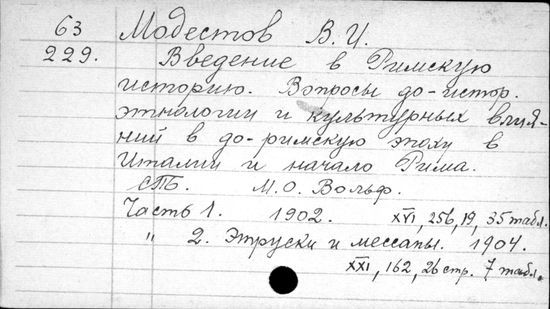 63 Модестов В. И.
229. Введение в Римскую
историю. Вопросы до-истор.
этнологии и культурных влия-
ний в до-римскую эпоху в
Италии и начало Рима.
СПб. М. О. Вольф.
Часть 1. 1902. XVI, 256, 19, 35 табл.
" 2. Этруски и мессапы. 1904.
XXI, 162, 26 стр. 7 табл.